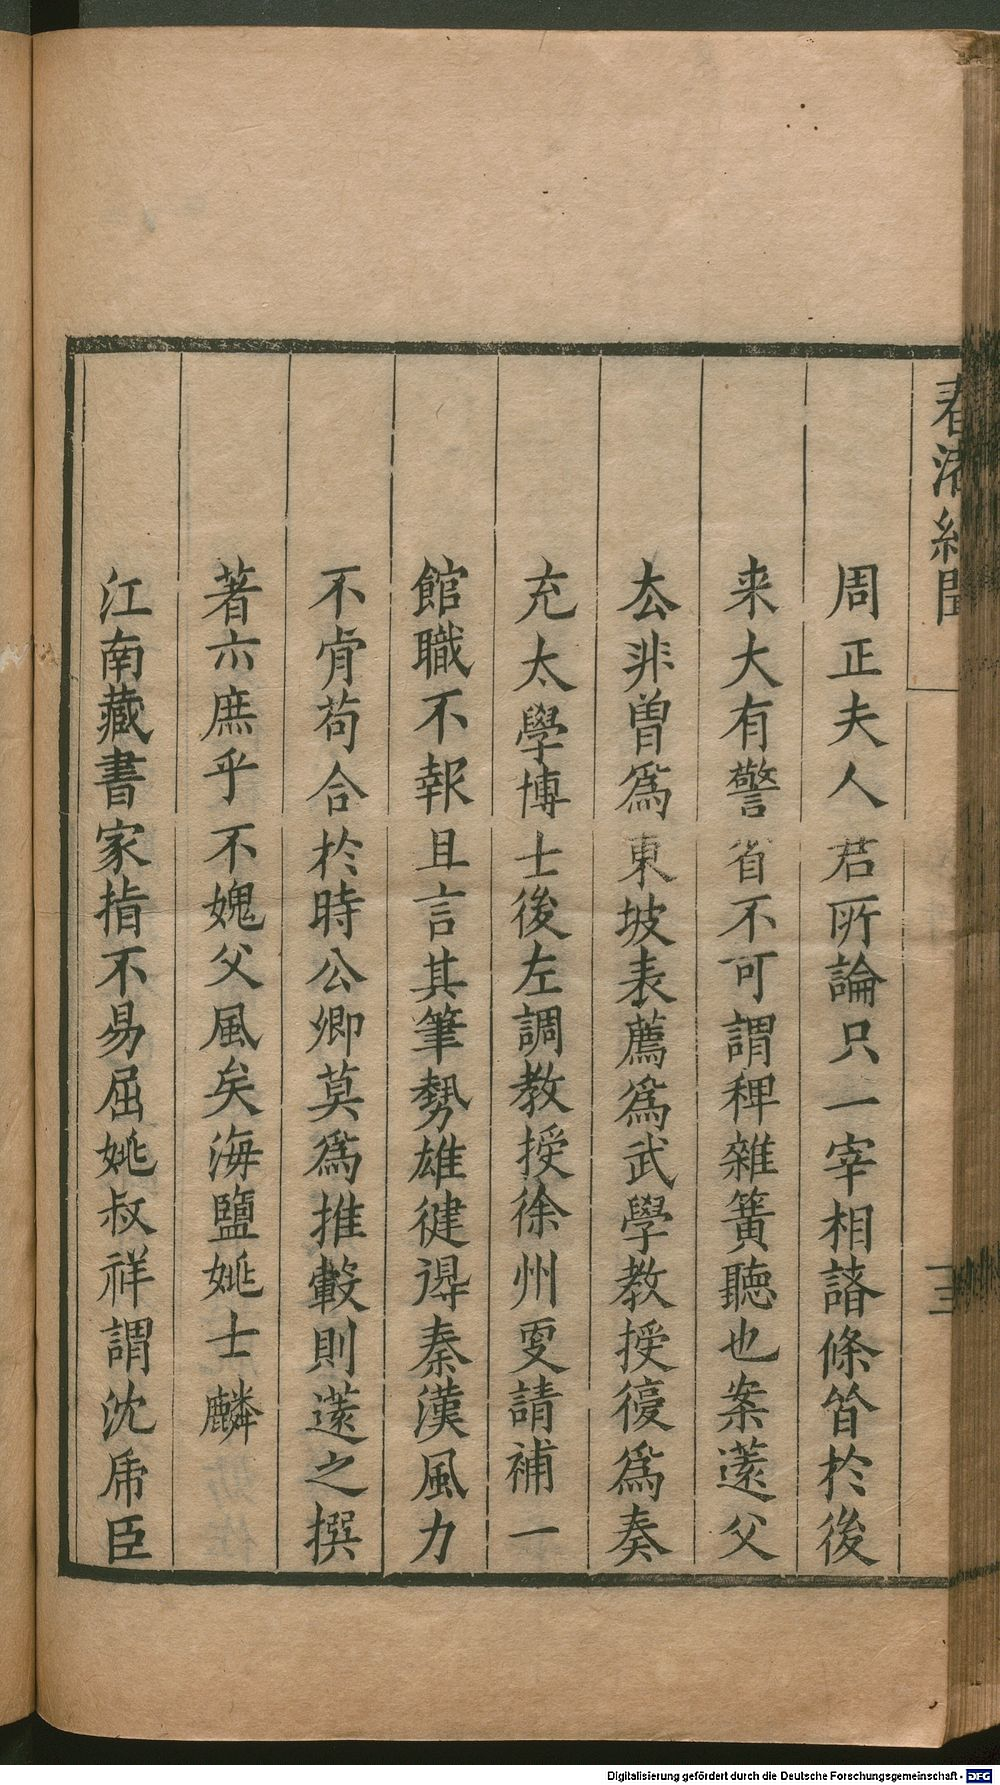 春渚紀聞
三
周正夫人君所論只一宰相諸條皆於後
来大有警省不可謂稗雜簧聽也案薳父
去非曽爲東坡表薦爲武學教授復爲奏
充太學博士後左調教授徐州更請補一
館職不報且言其筆勢雄徤得秦漢風力
不肯苟合於時公卿莫爲推轂則薳之撰
著亦庶乎不媿父風矣海鹽姚士麟
江南藏書家指不易屈姚叔祥謂沈虎臣
Digitalisierung gefördert durch die Deutsche Forschungsgemeinschaft - DFG